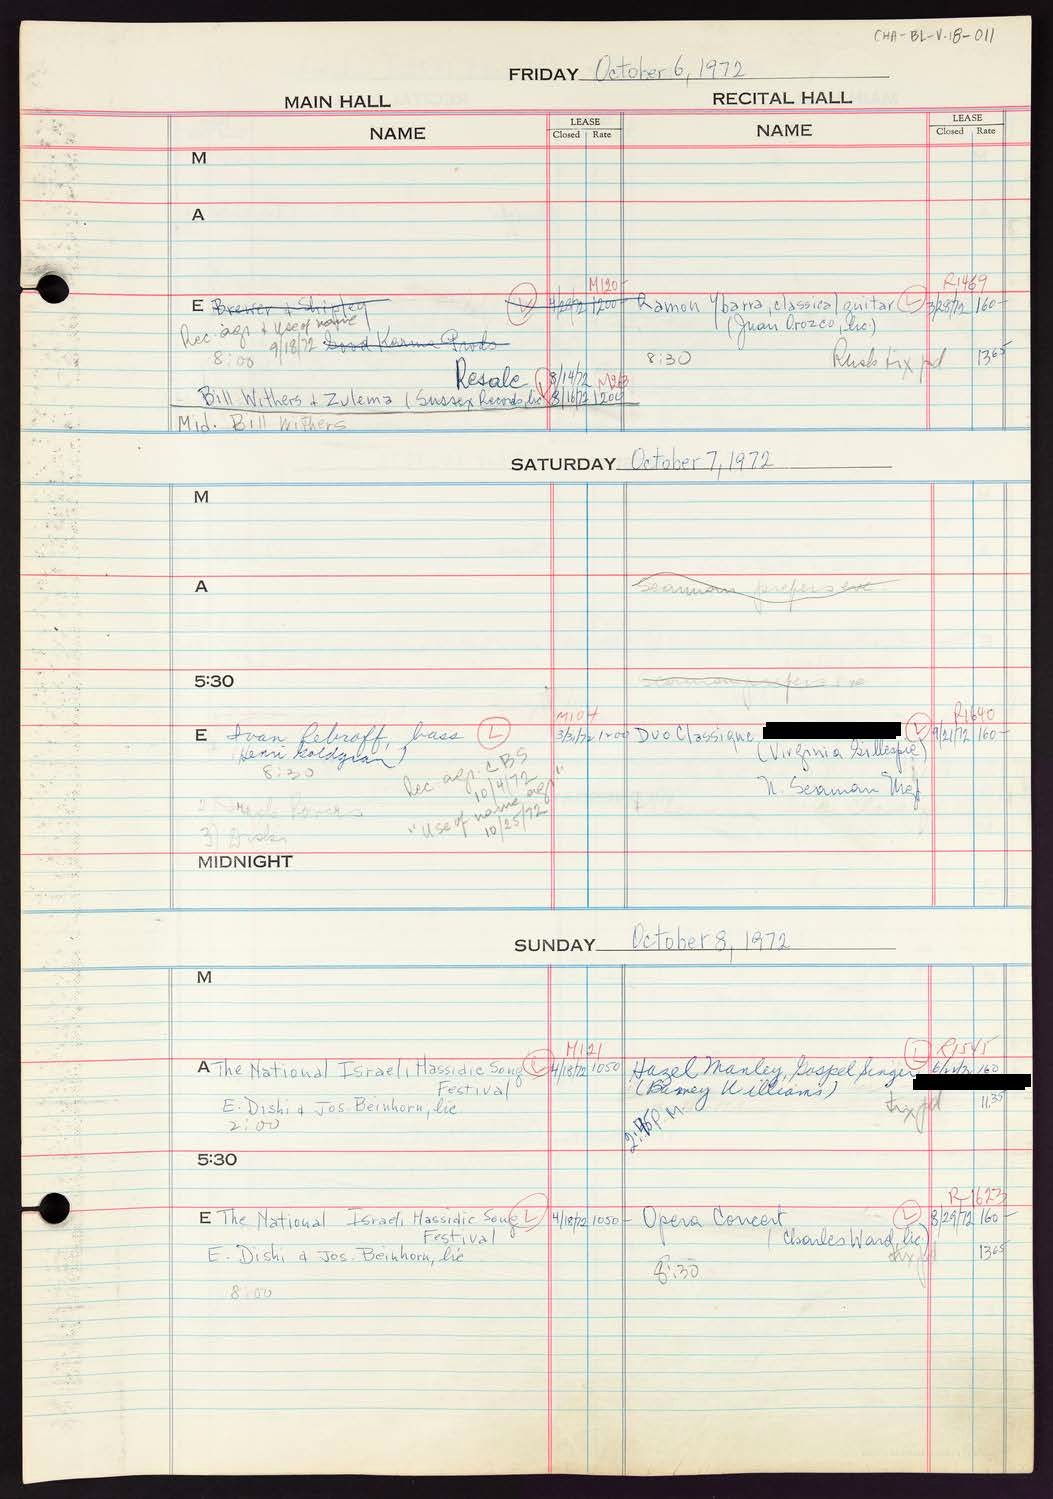 CHA-BL-V-18-011
FRIDAY October 6, 1972
MAIN HALL
RECITAL HALL
NAME
LEASE
Closed Rate
NAME
LEASE
Closed Rate
M
A
M120-
R1469
E Brewer & Shipley L 4/29/72 1200-
Rec. agr. & Use of name
9/18/72 Good Karma Prods
8:00
Ramon Ybarra, classical guitar L 3/28/72 160-
(Juan Orozco, lic)
8:30
Rush tix pd 1365
Resale 8/14/72 M263
Bill Withers & Zulema (Sussex Records, lic) 8/16/72 1200
Mid. Bill Withers
SATURDAY October 7, 1972
M
A
Seaman prefers eve
5:30
Seaman prefers eve
M104
R1640
E Ivan Rebroff, bass L 3/31/72 1200
(Henri Goldgran)
8:30
Rec. agr. CBS
10/4/72
"Use of name agr."
10/25/72
Duo Classique L 9/21/72 160-
(Virginia Gillespie)
N. Seaman Mgt
MIDNIGHT
SUNDAY October 8, 1972
M
M121
R1545
A The National Israeli Hassidic Song L 4/18/72 1050
Festival
E. Dishi & Jos. Beinhorn, lic
2:00
Hazel Manley, Gospel Singer L 160
(Barney Williams)
2:45 P.M.
tix pd 11.35
5:30
R-1623
E The National Israeli Hassidic Song L 4/18/72 1050-
Festival
E. Dishi & Jos. Beinhorn, lic
8:00
Opera Concert L 8/29/72 160-
(Charles Ward, lic)
tix pd 1365
8:30